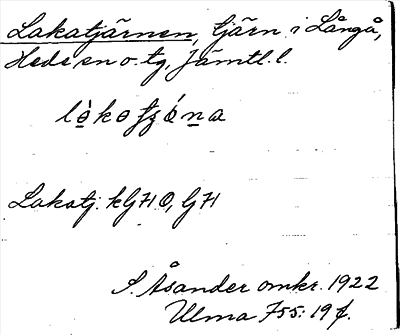 Lakatjärnen, tjärn i Långå,
Hede sn o. tg, Jämtl. l.
Lakatj. kGHO, GH
S. Åsander omkr. 1922
Ulma 755: 19